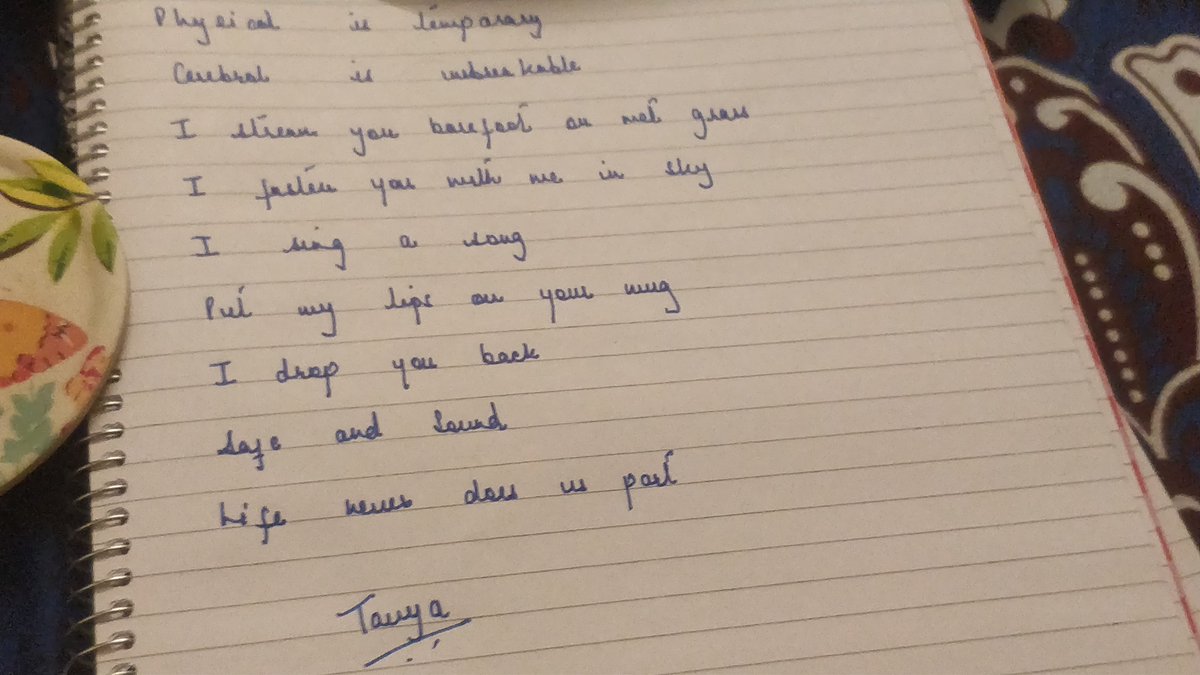 Physical is temporary
Cerebral is unbreakable
I stream you barefoot on wet grass
I fasten you with me in sky
I sing a song
Put my lips on your mug
I drop you back
Safe and Sound
Life never does us part
Tanya